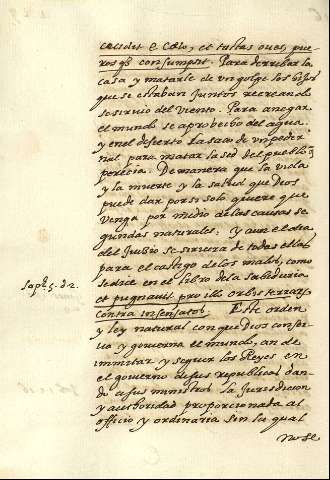 cecidit e Cœlo, et tactas oues, pue-
rosq3 consumpsit. Para derribar la
casa y matarle de vn golpe los hijos
que estaban juntos recreando
se siruio del viento. Para anegar
el mundo se aprobecho del agua
y en el desierto la saco de vn peder
nal para matar la sed del pueblo q̃
perecia. De manera que la vida
y la muerte y la salud que Dios
puede dar por si solo quiere que
venga por medio de las causas se
gundas naturales: y aun el dia
del Juibio se seruira de todas ellas
para el castigo de los malos, como
se dice en el libro de la Sabiduria
Sap. 5. d. 2.
et pugnauit pro illo orbis terrarũ
contra insensatos. Este orden
y ley natural con que Dios conser-
ua y gouierna el mundo, an de
immitar y seguir los Reyes en
el gouierno de sus republicas dan-
do a sus ministros la Jurisdicion
y authoridad proporcionada al
officio y ordinaria sin la qual
no se